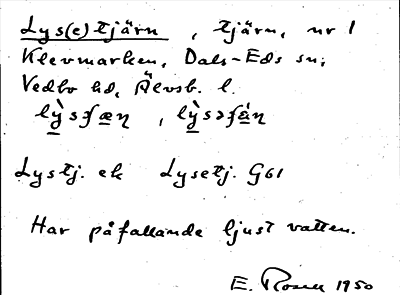 Lys(e)tjärn, tjärn, nr 1
Klevmarken, Dals-Eds sn,
Vedbo hd, Älvsb. l.
Lystj. ek Lysetj. G61
Har påfallande ljust vatten.
E. Rosell 1950